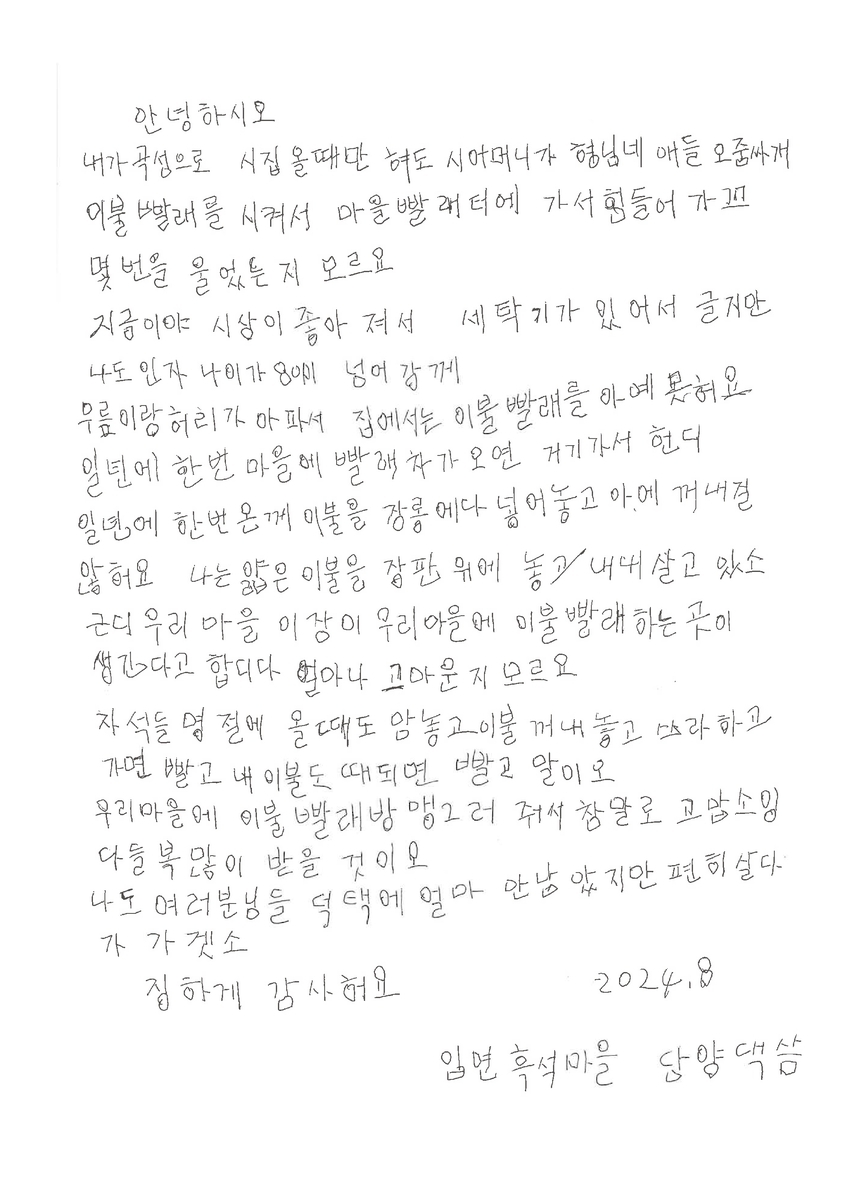 안녕하시오
내가 곡성으로 시집 올때만 혀도 시어머니가 형님네 애들 오줌싸게
이불 빨래를 시켜서 마을 빨래터에 가서 힘들어 가꼬
몇번을 울었는지 모르요
지금이야 시상이 좋아 져서 세탁기가 있어서 글지만
나도 인자 나이가 80이 넘어 강께
무릎이랑 허리가 아파서 집에서는 이불 빨래를 아예 못혀요
일년에 한번 마을에 빨래차가 오면 거기가서 헌디
일년에 한번 온께 이불을 장롱에다 넣어놓고 아에 꺼내질
않혀요 나는 얇은 이불을 장판 위에 놓고 내내 살고 있소
근디 우리 마을 이장이 우리마을에 이불 빨래 하는 곳이
생긴다고 합디다 얼마나 고마운지 모르요
자석들 명절에 올때도 암놓고 이불 꺼내 놓고 쓰라 하고
가면 빨고 내 이불도 때되면 빨고 말이오
우리마을에 이불 빨래방 맹그러 줘서 참말로 고맙소잉
다들 복 많이 받을 것이오
나도 여러분님들 덕택에 얼마 안남았지만 편히 살다
가 가겟소
집하게 감사혀요 2024.8
입면 흑석마을 단양댁 씀